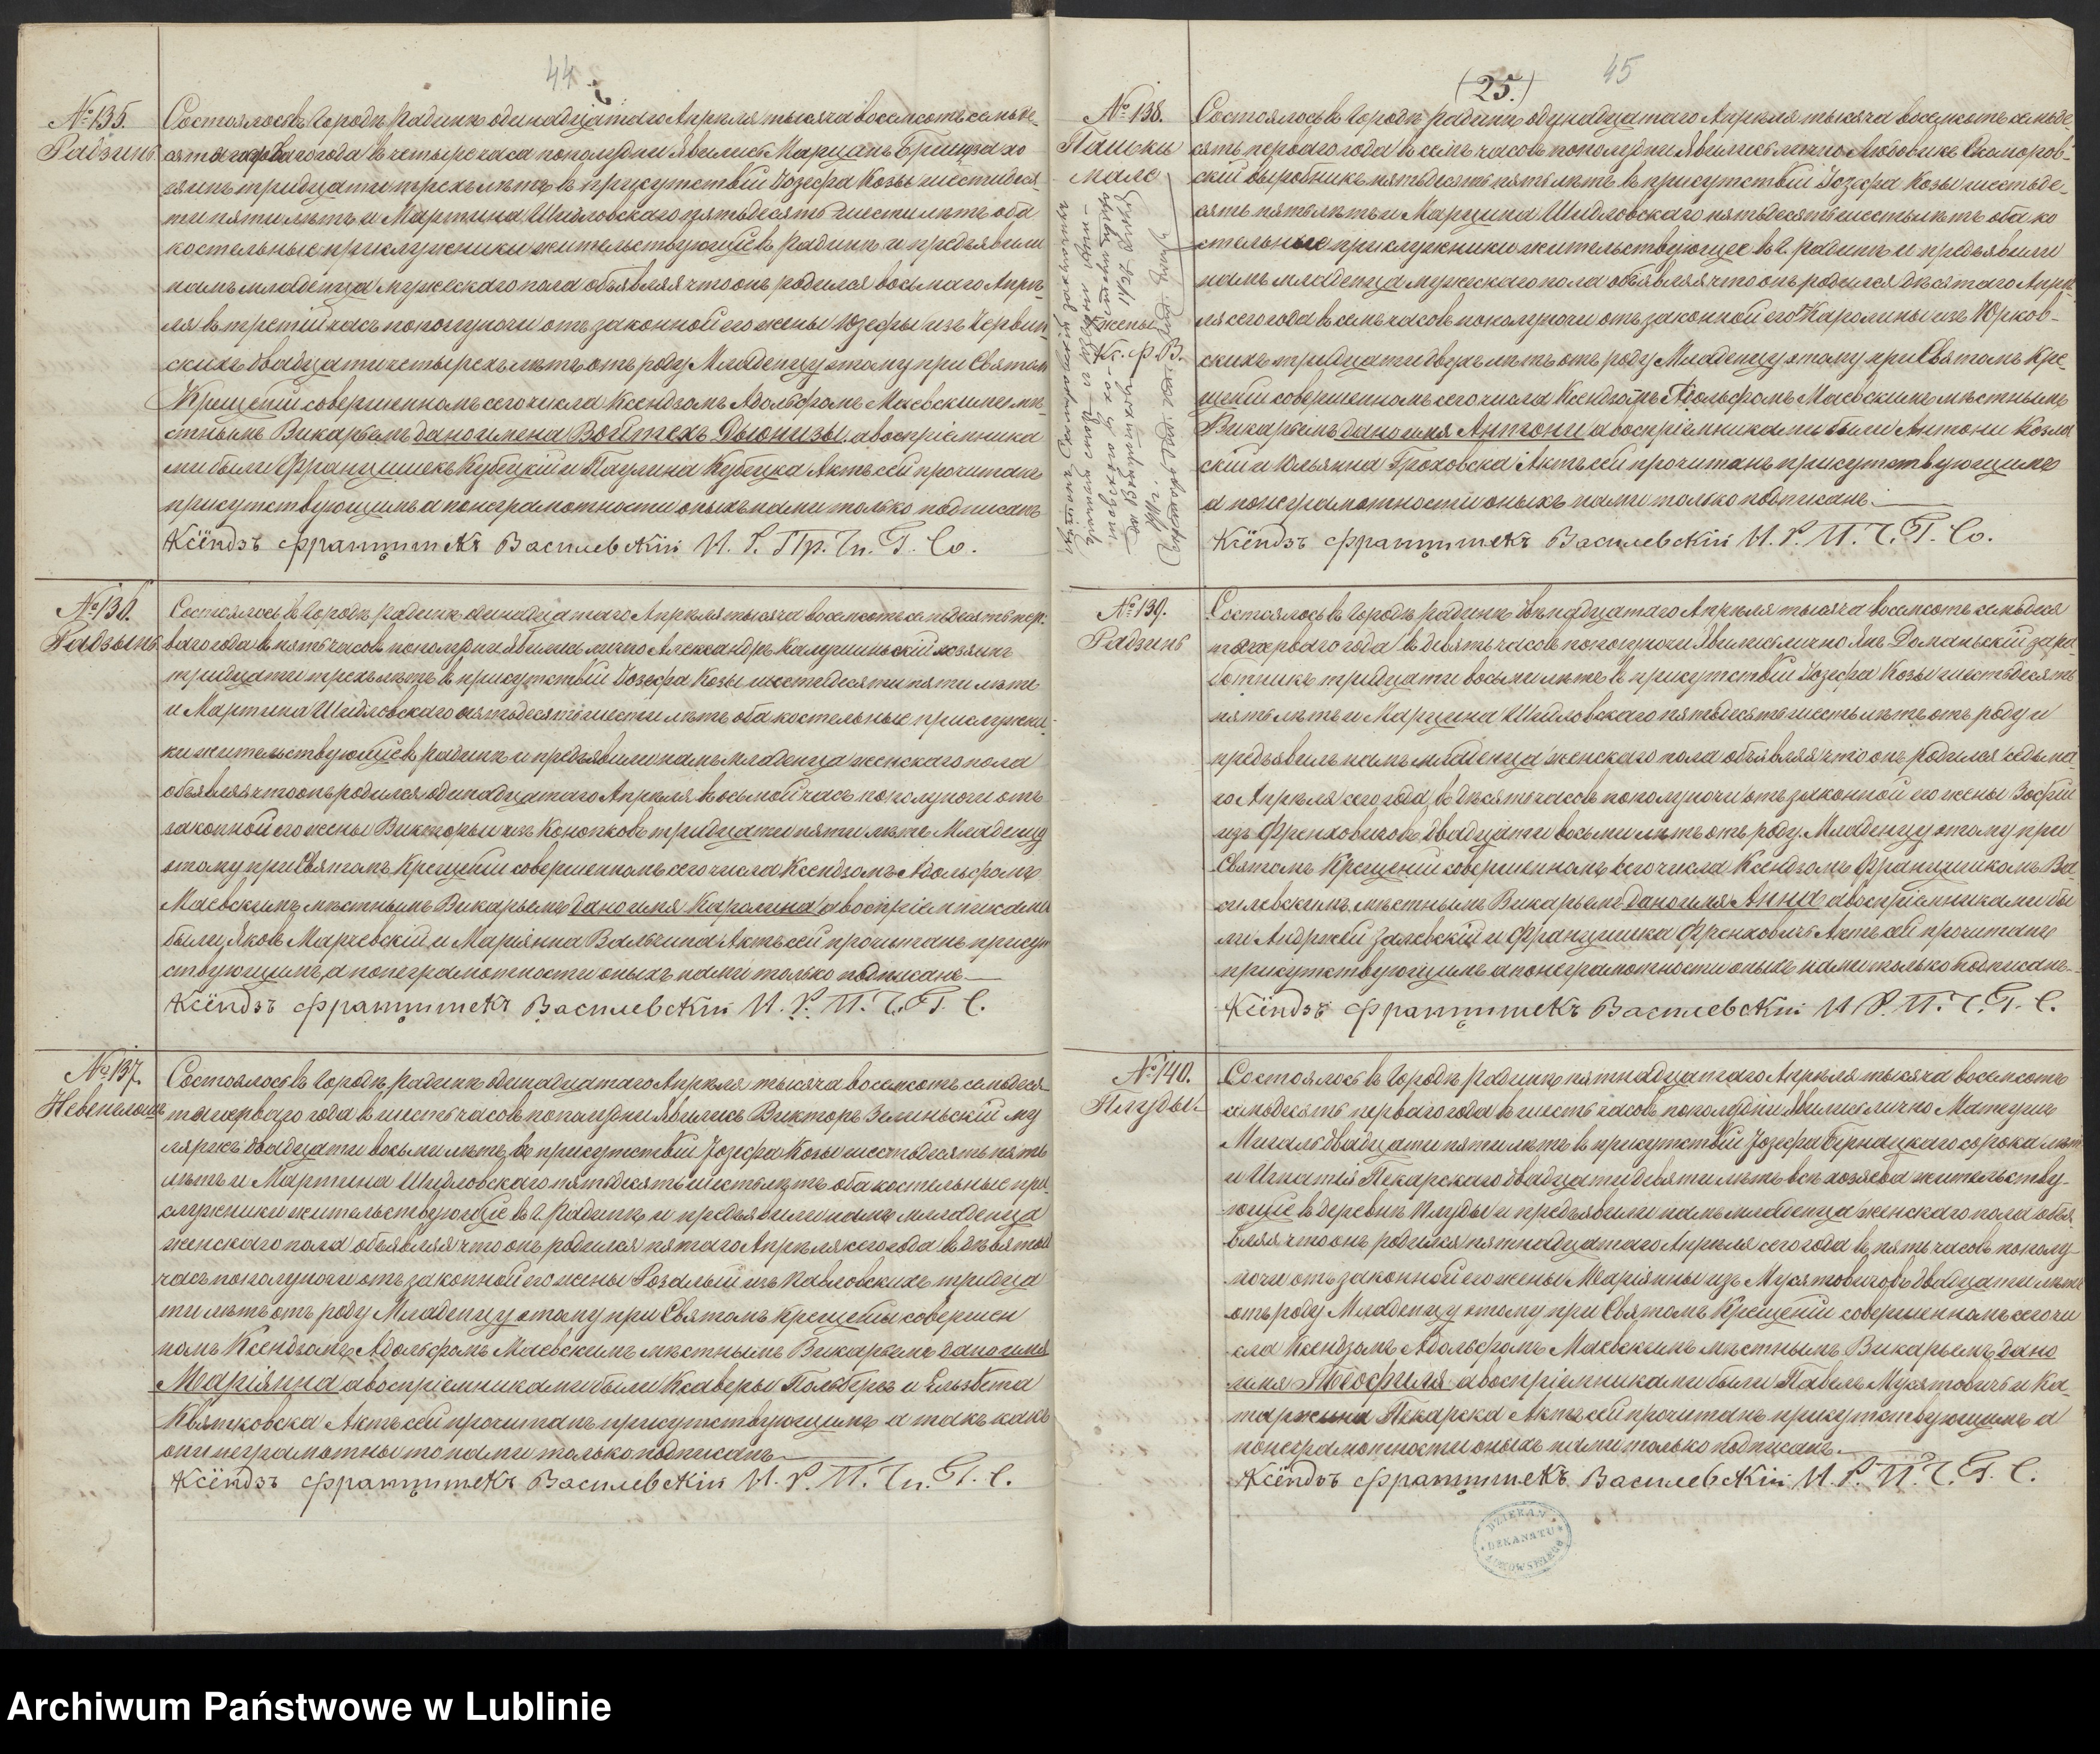 44
№ 135.
Радзинь
Состоялось въ Городѣ Радинѣ одинадцатаго Апрѣля тысяча восемсотъ семьде-
сятаго перваго года въ четыре часа пополудни явились Марцинъ Грицза хо
зяинъ тридцати трехъ лѣтъ въ присутствіи Іозефа Козы шестидеся
ти пяти лѣтъ и Мартина Шидловскаго пятьдесятъ шести лѣтъ оба
костельные прислужники жительствующіе въ Радинѣ и предъявили
намъ младенца мужескаго пола объявляя что онъ родился восьмаго Апрѣ-
ля въ третій часъ пополуночи отъ законной его жены Юзефы изъ Червин
скихъ двадцати четырехъ лѣтъ отъ роду Младенцу этому при Святомъ
Крещеніи совершенномъ сего числа Ксендзомъ Адольфомъ Маевскимъ мѣ-
стнымъ Викарьемъ дано имена Войтехъ Дыонизы, а воспріемника
ми были Францишекъ Кубецкій и Паулина Кубецка Актъ сей прочитанъ
присутствующимъ а по неграмотности оныхъ нами только подписанъ
Ксёндзъ Францишекъ Василевскій И. Р. Пр. Чи. Г. Со.
№ 136.
Радзынь
Состоялось въ Городѣ Радинѣ одинадцатаго Апрѣля тысяча восемсотъ семьдесятъ пер-
ваго года въ пять часовъ пополудни явились лично Александръ Калушинскій хозяинъ
тридцати трехъ лѣтъ въ присутствіи Іозефа Козы шестидесяти пяти лѣтъ
и Мартина Шидловскаго пятьдесятъ шести лѣтъ оба костельные прислужни-
ки жительствующіе въ Радинѣ и предъявили намъ младенца женскаго пола
объявляя что онъ родился одинадцатаго Апрѣля въ осьмой часъ пополуночи отъ
законной его жены Викторьи изъ Конопковъ тридцати пяти лѣтъ Младенцу
этому при Святомъ Крещеніи совершенномъ сего числа Ксендзомъ Адольфомъ
Маевскимъ мѣстнымъ Викарьемъ дано имя Каролина а воспріемниками
были Яковъ Марчевскій и Маріянна Вальчина Актъ сей прочитанъ присут
ствующимъ, а по неграмотности оныхъ нами только подписанъ.
Ксёндзъ Францишекъ Василевскій И. Р. П. Ч. Г. С.
№ 137.
Невенглошъ
Состоялось въ Городѣ Радинѣ одинадцатаго Апрѣля тысяча восемсотъ семьдеся
та перваго года въ шесть часовъ пополудни явились Викторъ Зелинскій му
ляржъ двадцати восьми лѣтъ, въ присутствіи Іозефа Козы шестьдесятъ пять
лѣтъ и Мартина Шидловскаго пятьдесятъ шесть лѣтъ оба костельные при-
служники жительствующіе въ Г. Радинѣ и предъявили намъ младенца
женскаго пола объявляя что онъ родился пятаго Апрѣля сего года въ девятый
часъ пополуночи отъ законной его жены Розальи изъ Павловскихъ тридца
ти лѣтъ отъ роду Младенцу этому при Святомъ Крещеніи совершен
номъ Ксендзомъ Адольфомъ Маевскимъ мѣстнымъ Викарьемъ дано имя
Маріянна а воспріемниками были Ксаверы Польберсъ и Ельзбета
Квятковска Актъ сей прочитанъ присутствующимъ а такъ какъ
они неграмотны то нами только подписанъ
Ксёндзъ Францишекъ Василевскій И. Р. П. Чи. Г. С.
(25.)
45
№ 138.
Пашки
малe
жены
Кс. Ф. В.
Состоялось въ Городѣ Радинѣ одунадцатаго Апрѣля тысяча восемсотъ семьде-
сять перваго года въ семь часовъ пополудни Явились лично Людовикъ Скоморов-
скій выробникъ пятьдесятъ пять лѣтъ въ присутствіи Іозефа Козы шестьде-
сять пять лѣтъ и Марцина Шидловскаго пятьдесятъ шесть лѣтъ оба ко
стельные прислужники жительствующіе въ Г. Радинѣ и предъявили
намъ младенца мужескаго пола объявляя что онъ родился десятаго Апрѣ-
ля сего года въ семь часовъ пополуночи отъ законной его Каролины изъ Юрков-
скихъ тридцати двухъ лѣтъ отъ роду Младенцу этому при Святомъ Кре-
щеніи совершенномъ сего числа Ксендзомъ Адольфомъ Маевскимъ мѣстнымъ
Викарьемъ дано имя Антони а воспріемниками были Антони Козлов
скій и Юльянна Гроховска Актъ сей прочитанъ присутствующимъ
а по неграмотности оныхъ нами только подписанъ.
Ксёндзъ Францишекъ Василевскій И. Р. П. Ч. Г. Со.
№ 139.
Радзинь
Состоялось въ Городѣ Радинѣ двѣнадцатаго Апрѣля тысяча восемсотъ семьдеся
та перваго года въ девять часовъ пополуночи явились лично Янъ Доманьскій зара
ботникъ тридцати восьми лѣтъ въ присутствіи Іозефа Козы шестьдесятъ
пять лѣтъ и Марцина Шидловскаго пятьдесятъ шесть лѣтъ отъ роду и
предъявилъ намъ младенца женскаго пола объявляя что онъ родился седьма
го Апрѣля сего года въ десять часовъ пополуночи отъ законной его жены Зофіи
изъ Френховичовъ двадцати восьми лѣтъ отъ роду. Младенцу этому при
Святомъ Крещеніи совершенномъ сего числа Ксендзомъ Францишкомъ Ва
силевскимъ мѣстнымъ Викарьемъ дано имя Анна а воспріемниками бы
ли Анджей Залевскій и Францишка Френховичъ Актъ сей прочитанъ
присутствующимъ а по неграмотности оныхъ нами только подписанъ.
Ксёндзъ Францишекъ Василевскій И. Р. П. Ч. Г. С.
№ 140.
Плуды.
Состоялось въ Городѣ Радинѣ пятнадцатаго Апрѣля тысяча восемсотъ
семьдесятъ перваго года въ шесть часовъ пополудни явились лично Матеушъ
Мигаль двадцати пяти лѣтъ въ присутствіи Іозефа Бернацкаго сорока лѣтъ
и Игнатія Пекарскаго двадцати девяти лѣтъ всѣ хозяева жительству-
ющіе въ деревнѣ Плуды и предъявили намъ младенца женскаго пола объя-
вляя что онъ родился пятнадцатаго Апрѣля сего года въ пять часовъ пополу-
ночи отъ законной его жены Маріянны изъ Мухтовичовъ двадцати лѣтъ
отъ роду Младенцу этому при Святомъ Крещеніи совершенномъ сего чи
сла Ксендзомъ Адольфомъ Маевскимъ мѣстнымъ Викарьемъ дано
имя Теофиля а воспріемниками были Павелъ Мухтовичъ и Ка-
таржина Пекарска Актъ сей прочитанъ присутствующимъ а
по неграмотности оныхъ нами только подписанъ.
Ксёндзъ Францишекъ Василевскій И. Р. П. Ч. Г. С.
DZIEKAN
DEKANATU
ŁUKOWSKIEGO
Archiwum Państwowe w Lublinie